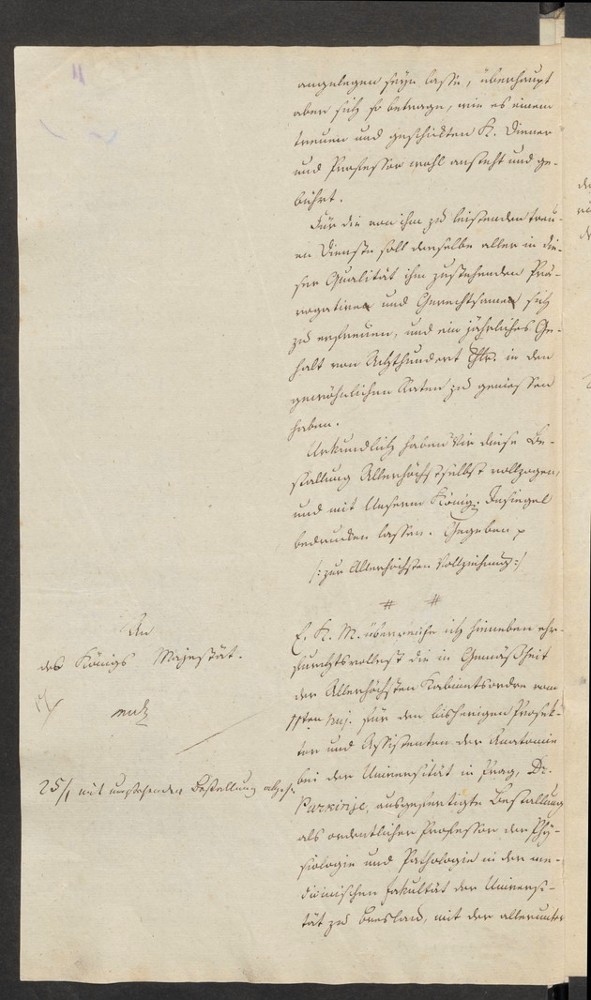 angelegen seyn lasse, überhaupt
aber sich so betrage, wie es einem
treuen und geschickten K. Diener
und Professor wohl ansteht und ge-
bührt.
Für die von ihm zu leistenden treu-
en Dienste soll derselbe aller in die-
ser Qualität ihm zustehenden Prä-
rogative und Gerechtsame sich
zu erfreuen, und ein jährliches Ge-
halt von Achthundert Thlr. in den
gewöhnlichen Raten zu geniessen
haben.
Urkundlich haben Wir diese Be-
stallung Allerhöchstselbst vollzogen,
und mit Unserm Königl. Insiegel
bedrucken lassen. Gegeben
/: zur Allerhöchsten Vollziehung :/
An
des Königs Majestät.
25/1 mit umstehender Bestallung
E. K. M. überreiche ich hieneben ehr-
furchtsvollst die in Gemäßheit
der Allerhöchsten Kabinetsordre vom
11ten huj. für den bisherigen Prosek-
tor und Assistenten der Anatomie
bei der Universität in Prag, Dr.
Purkinje, ausgefertigte Bestallung
als ordentlicher Professor der Phy-
siologie und Pathologie in der me-
dicinischen Fakultät der Universi-
tät zu Breslau, mit der allerunter